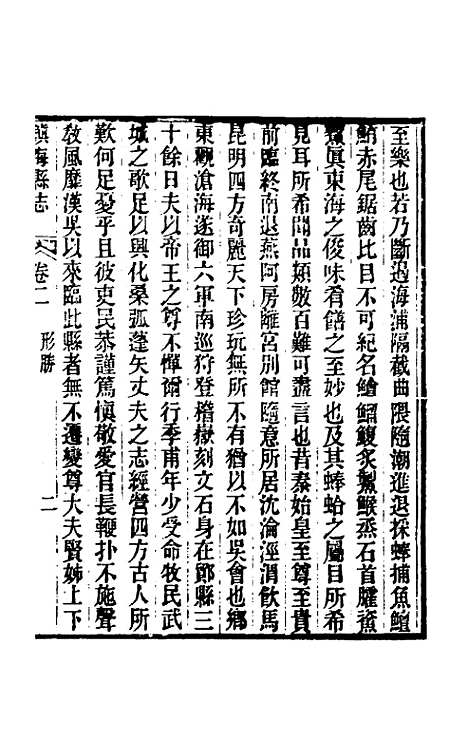 至樂也若乃斷遏海浦隔截曲隈隨潮進退採蜯捕魚鱣
鮪赤尾鋸齒比目不可紀名鱠鰡鰒炙䱥鯸烝石首臛𩺰
鮆眞東海之俊味肴饍之至妙也及其蜯蛤之屬目所希
見耳所希聞品類數百難可盡言也昔秦始皇至尊至貴
前臨終南退燕阿房離宮別館隨意所居沈淪涇渭飮馬
昆明四方奇麗天下珍玩無所不有猶以不如吳會也鄉
東觀滄海遂御六軍南巡狩登稽嶽刻文石身在鄮縣三
十餘日夫以帝王之尊不憚爾行季甫年少受命牧民武
城之歌足以興化桑弧蓬矢丈夫之志經營四方古人所
歎何足憂乎且彼吏民恭謹篤愼敬愛官長鞭扑不施聲
敎風靡漢吳以來臨此縣者無不遷變尊大夫賢姊上下
鎭海縣志 卷二 形勝 二